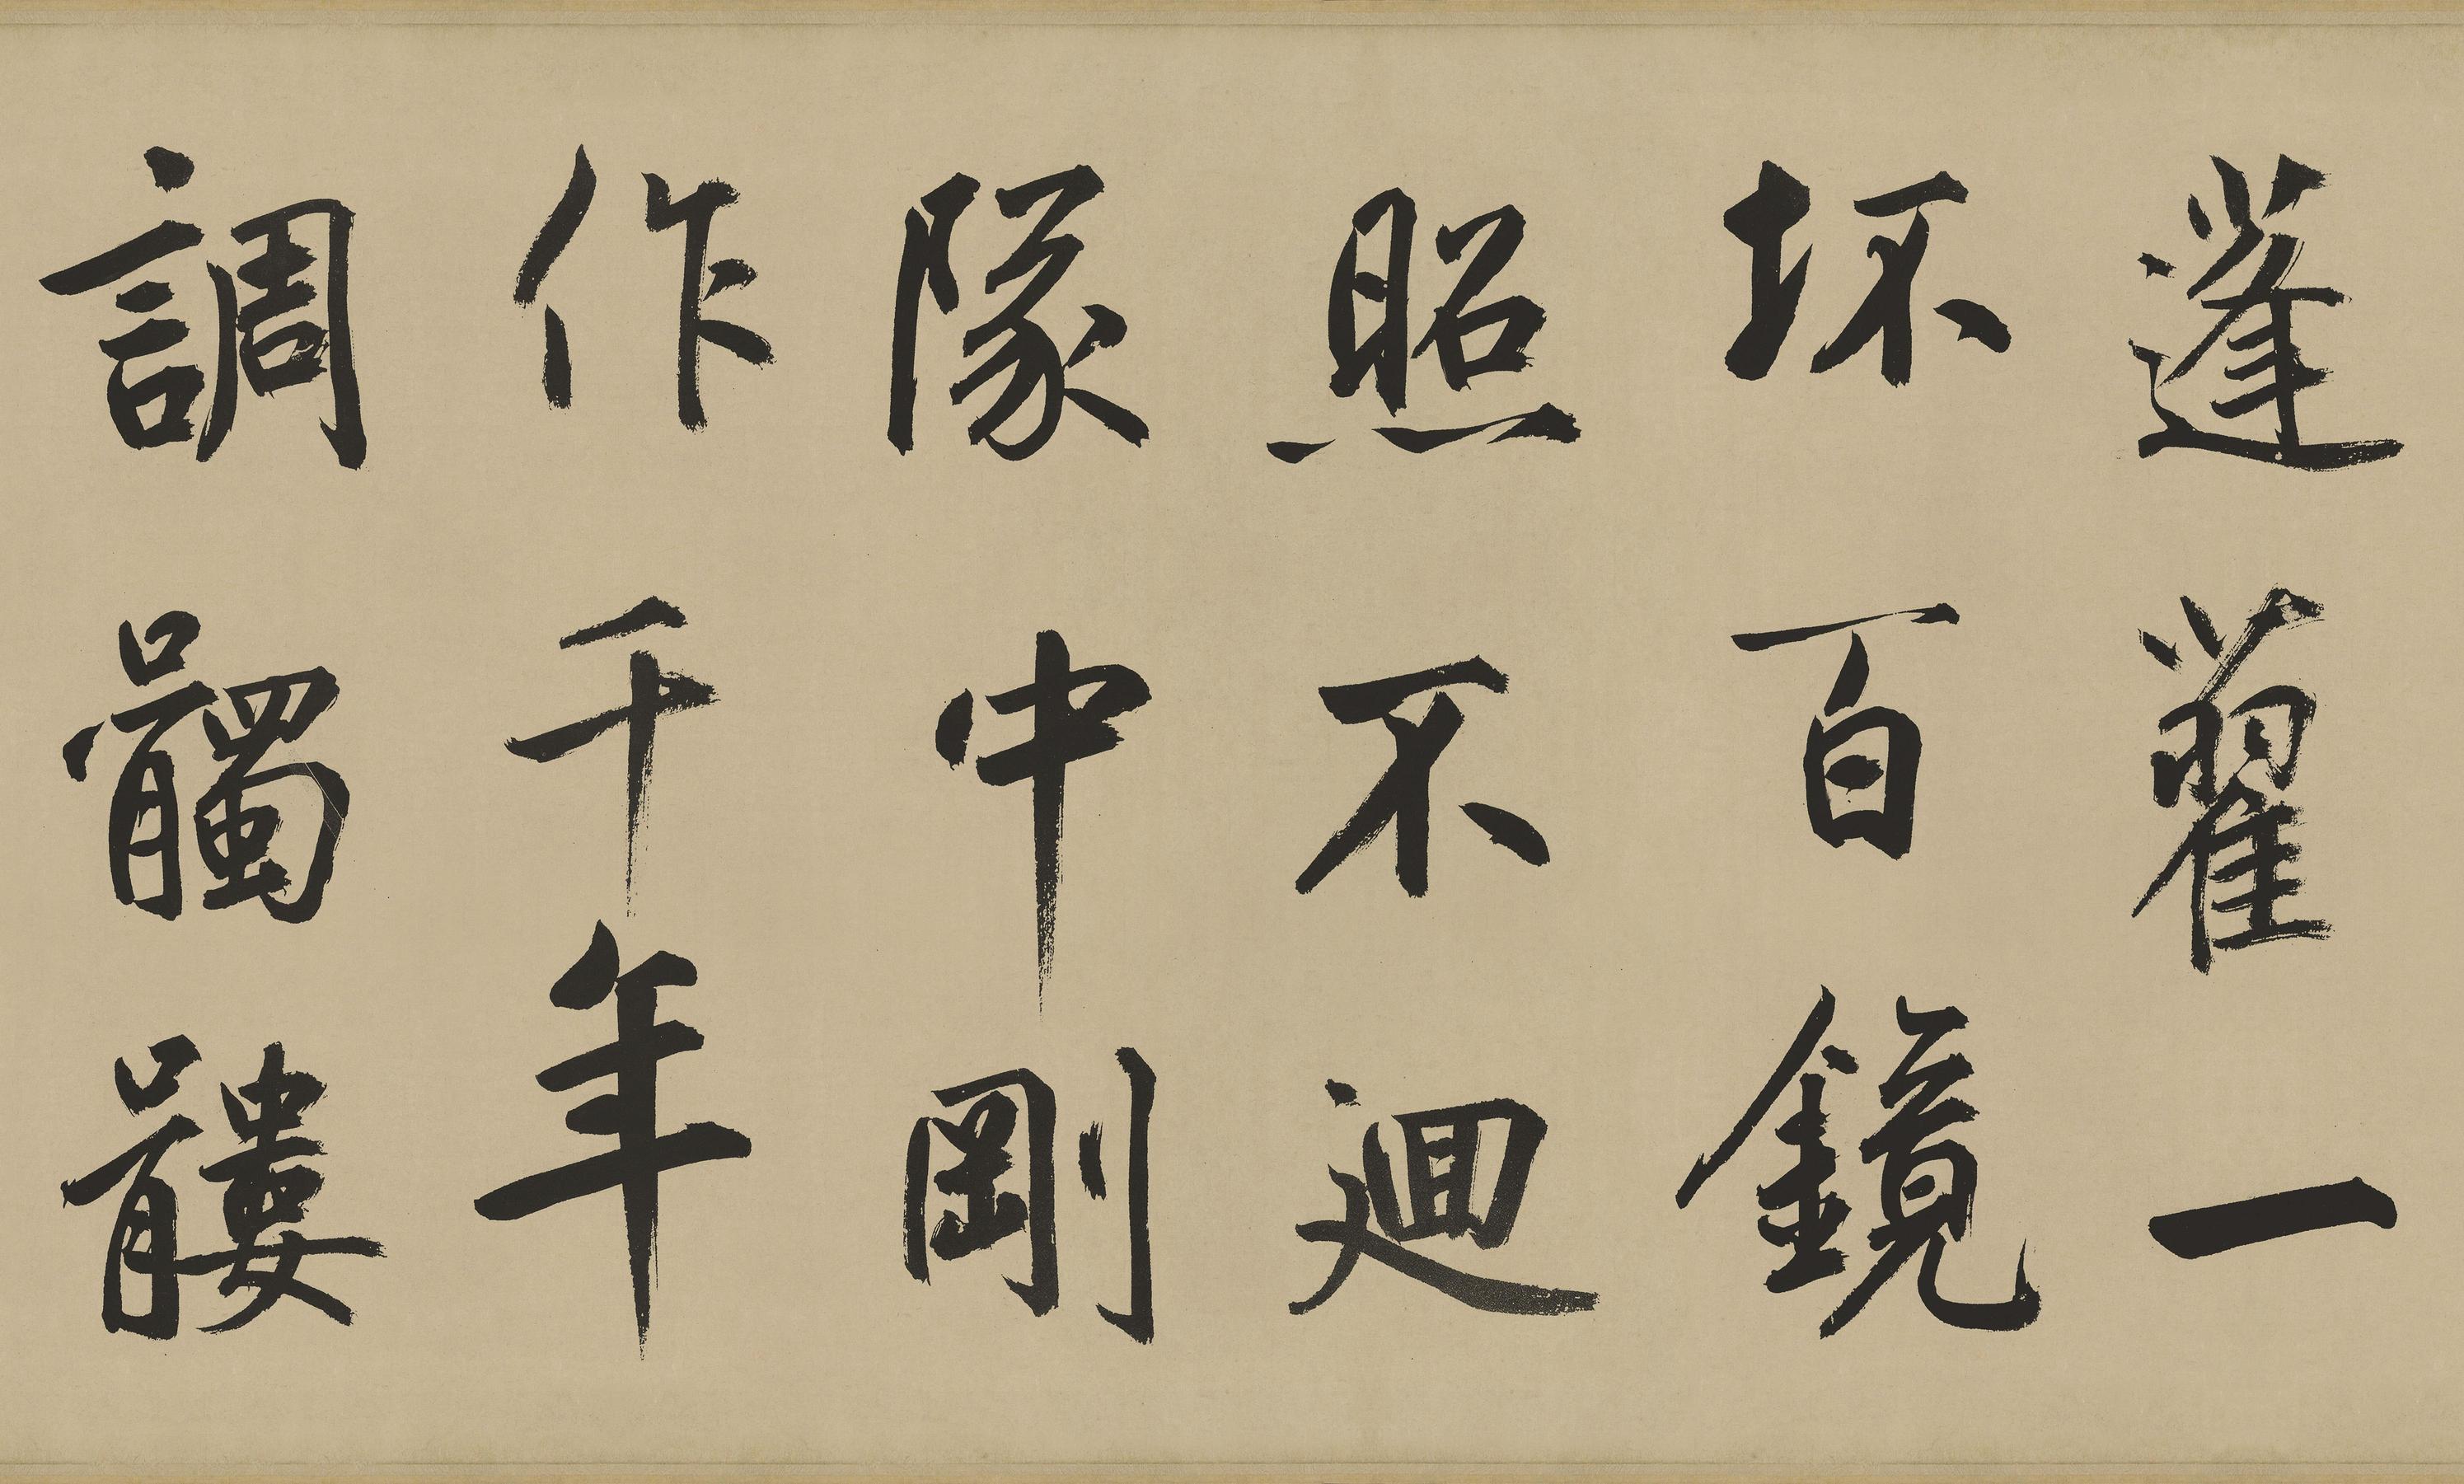 蓬藋一
坏百鏡
照不迴
隊中剛
作千年
調髑髏